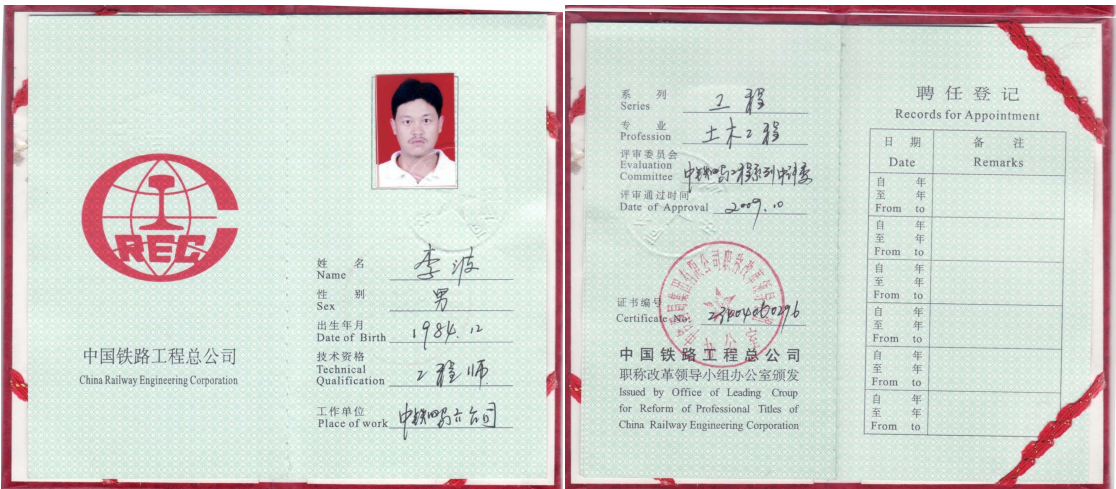 CREC
中国铁路工程总公司
China Railway Engineering Corporation
姓 名 李波
Name
性 别 男
Sex
出生年月 1984.12
Date of Birth
技术资格 工程师
Technical
Qualification
工作单位 中铁四局六公司
Place of work
系 列 工程
Series
专 业 土木工程
Profession
评审委员会
Evaluation
Committee 中铁四局工程系列中评委
评审通过时间
Date of Approval 2009.10
证书编号
Certificate No.
中国铁路工程总公司
职称改革领导小组办公室颁发
Issued by Office of Leading Croup
for Reform of Professional Titles of
China Railway Engineering Corporation
聘任登记
Records for Appointment
日 期 备 注
Date Remarks
自 年
至 年
From to
自 年
至 年
From to
自 年
至 年
From to
自 年
至 年
From to
自 年
至 年
From to
自 年
至 年
From to